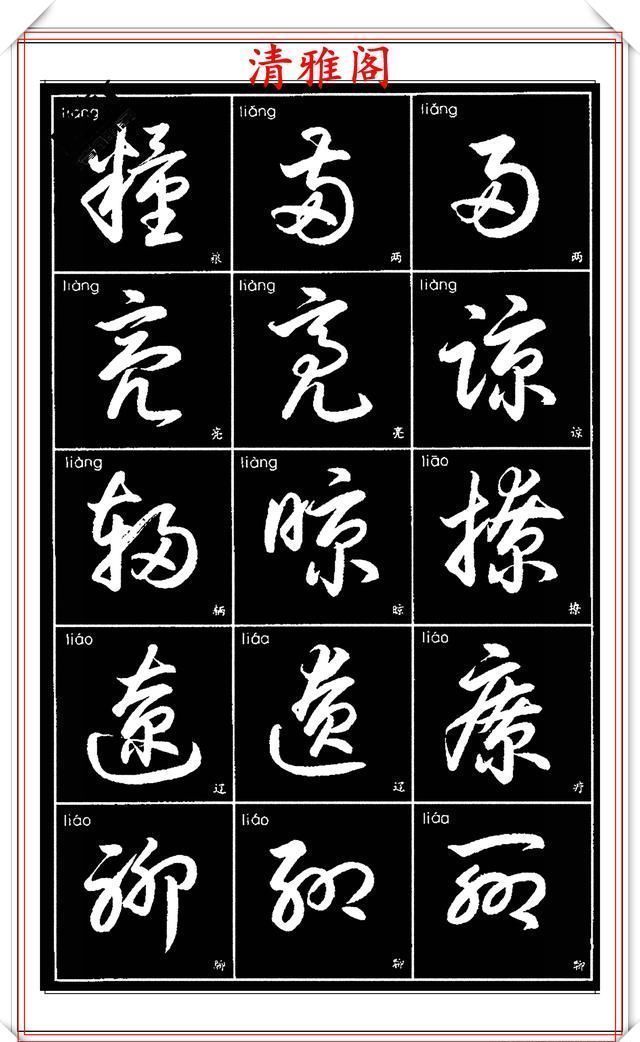 清雅阁
liáng liǎng liǎng
糧 両 両
粮 两 两
liàng liàng liàng
亮 亮 諒
亮 亮 谅
liàng liàng liāo
輛 晾 撩
辆 晾 撩
liáo liáo liáo
遼 遼 療
辽 辽 疗
liáo liáo liáo
聊 聊 聊
聊 聊 聊